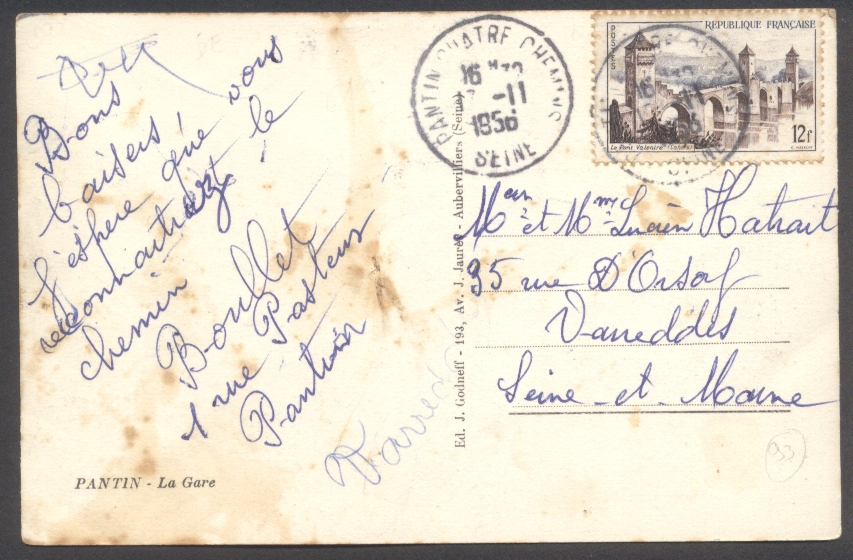 Bons
baisers
J'espère que vous
reconnaitrez le
chemin
Boullet
1 rue Pasteur
Pantin
PANTIN - La Gare
Ed. J. Godneff - 193, Av. J. Jaurès - Aubervilliers (Seine)
PANTIN QUATRE CHEMINS
16 H
-11
1956
SEINE
POSTES
REPUBLIQUE FRANÇAISE
Le Pont Valentré (Cahors)
12f
et Mme Lucien Hatrait
95 rue D'Orsay
Vareddes
Seine-et-Marne
93